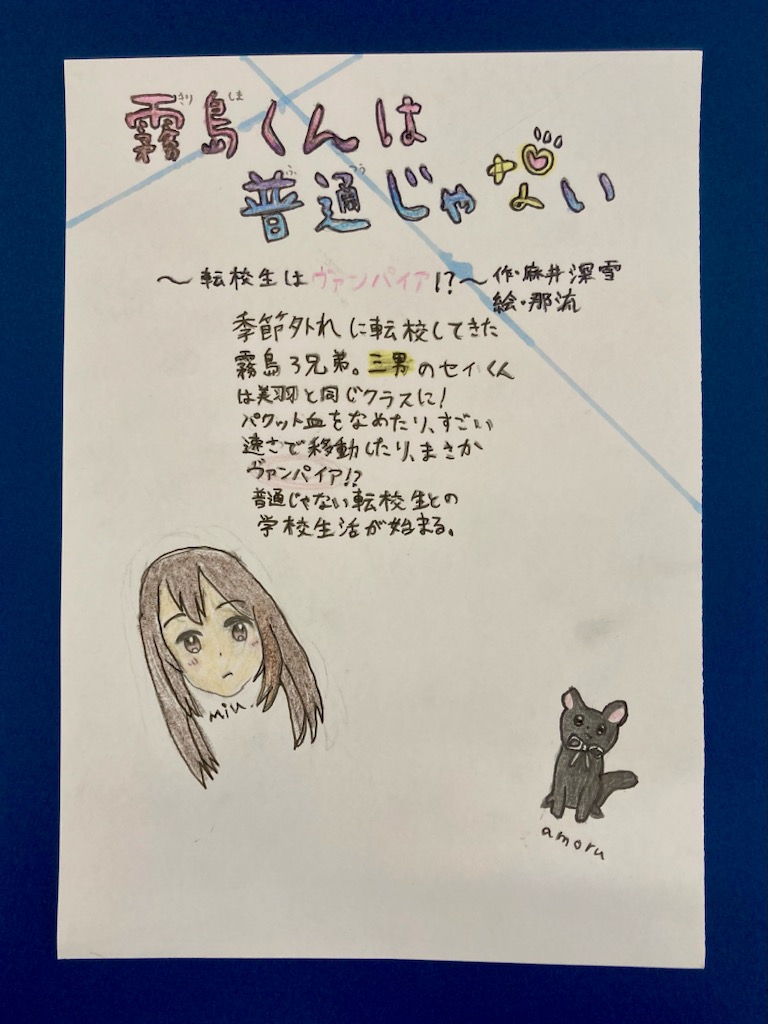 霧島くんは
普通じゃない
～転校生はヴァンパイア!?～ 作・麻井深雪
絵・那流
季節外れに転校してきた
霧島3兄弟。三男のセイくん
は美羽と同じクラスに!
パクット血をなめたり、すごい
速さで移動したり、まさか
ヴァンパイア!?
普通じゃない転校生との
学校生活が始まる。
miu.
amoru